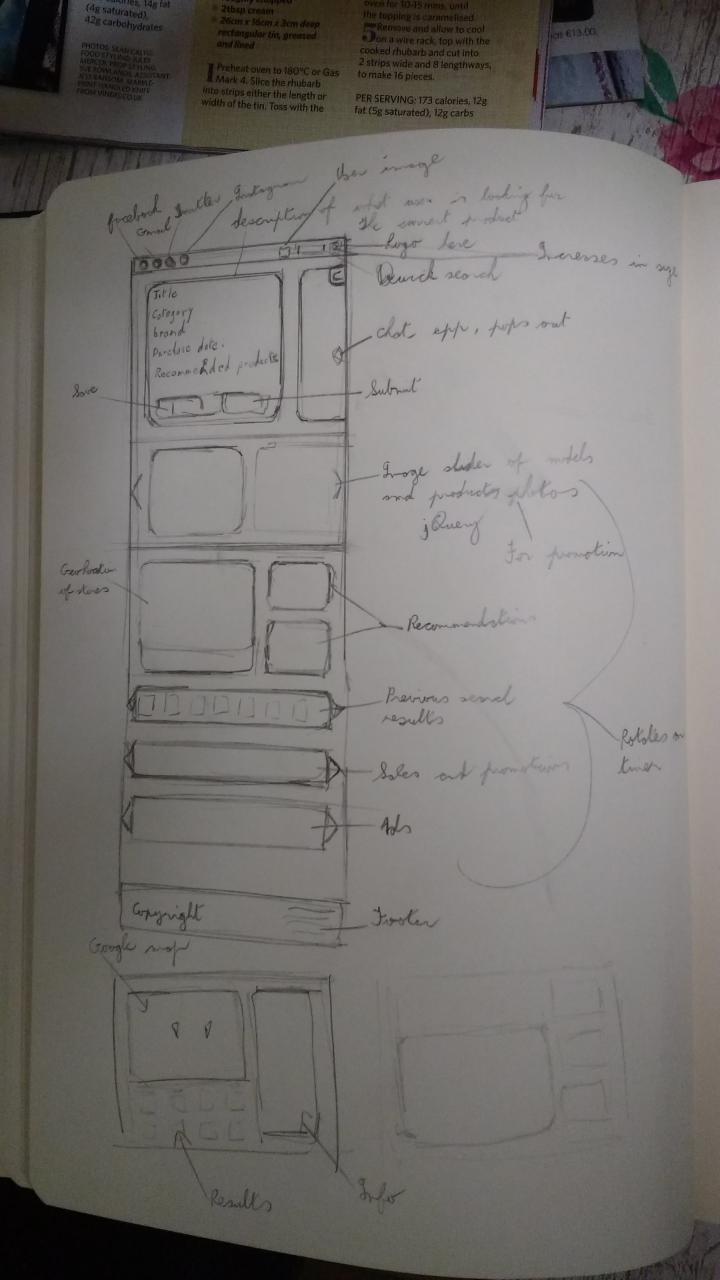 (4g saturated),
42g carbohydrates
PHOTOS: SEAN CALVO.
FOOD STYLING: JULES
MERCER. PROP STYLING:
2tbsp cream
26cm x 16cm x 3cm deep
rectangular tin, greased
and lined
1 Preheat oven to 180°C or Gas
Mark 4. Slice the rhubarb
into strips either the length or
width of the tin. Toss with the
oven for 10-15 mins, until
the topping is caramelised.
5 Remove and allow to cool
on a wire rack, top with the
cooked rhubarb and cut into
2 strips wide and 8 lengthways,
to make 16 pieces.
PER SERVING: 173 calories, 12g
fat (5g saturated), 12g carbs
€13.00,
User image
facebook
Gmail
Twitter
Instagram
description of what user is looking for
The correct product
Logo here
Increases in size
Quick search
Title
Category
brand
Purchase date.
Recommended products
Chat app, pops out
Save
Submit
Image slider of models
and products photos
jQuery
For promotion
Geolocation
of stores
Recommendations
Previous search
results
Rotates on
timer
Sales and promotions
Ads
Copyright
Footer
Google map
Results
Info